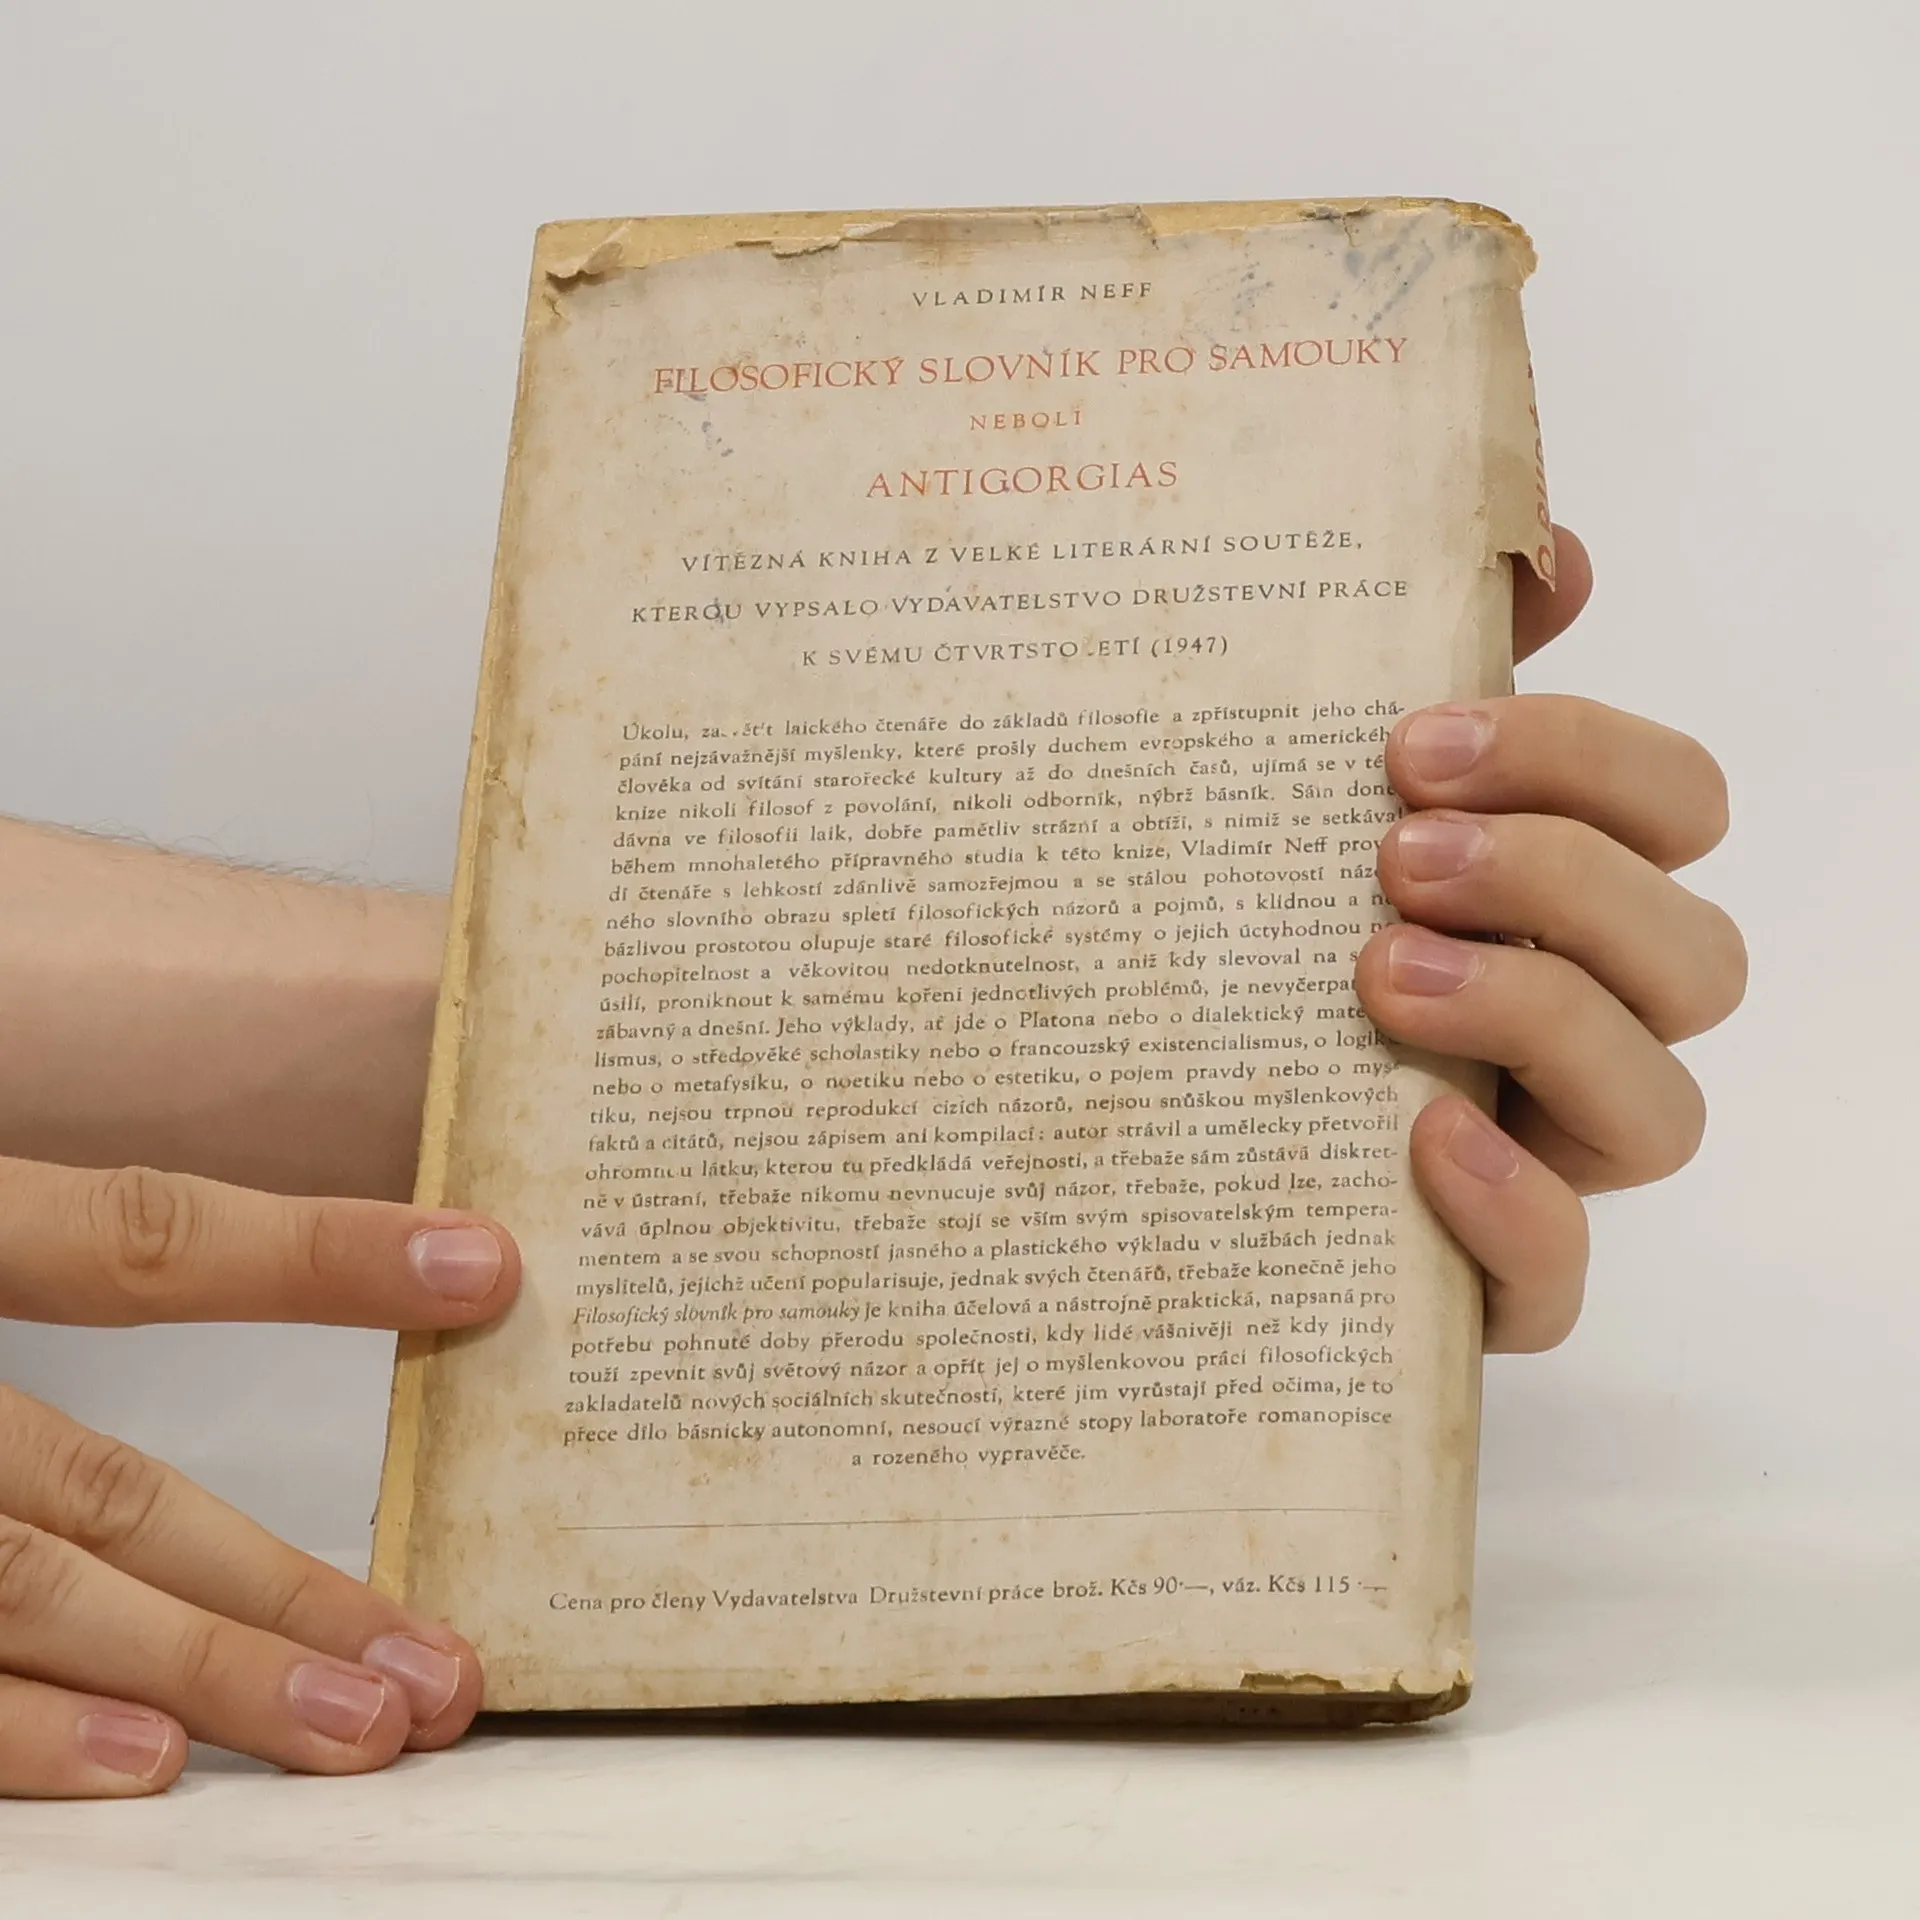 VLADIMÍR NEFF
FILOSOFICKÝ SLOVNÍK PRO SAMOUKY
NEBOLI
ANTIGORGIAS
VÍTĚZNÁ KNIHA Z VELKÉ LITERÁRNÍ SOUTĚŽE,
KTEROU VYPSALO VYDAVATELSTVO DRUŽSTEVNÍ PRÁCE
K SVÉMU ČTVRTSTOLETÍ (1947)
Úkolu, laického čtenáře do základů filosofie a zpřístupnit jeho chá-
pání nejzávažnější myšlenky, které prošly duchem evropského a americkéh
člověka od svítání starořecké kultury až do dnešních časů, ujímá se v té
knize nikoli filosof z povolání, nikoli odborník, nýbrž básník. Sám done
dávna ve filosofii laik, dobře pamětliv strázní a obtíží, s nimiž se setkával
během mnohaletého přípravného studia k této knize, Vladimír Neff prov
dí čtenáře s lehkostí zdánlivě samozřejmou a se stálou pohotovostí názo
ného slovního obrazu spletí filosofických názorů a pojmů, s klidnou a ne
bázlivou prostotou olupuje staré filosofické systémy o jejich úctyhodnou ne
pochopitelnost a věkovitou nedotknutelnost, a aniž kdy slevoval na s
úsilí, proniknout k samému kořeni jednotlivých problémů, je nevyčerpa
zábavný a dnešní. Jeho výklady, ať jde o Platona nebo o dialektický mate
lismus, o středověké scholastiky nebo o francouzský existencialismus, o logik
nebo o metafysiku, o noetiku nebo o estetiku, o pojem pravdy nebo o mys-
tiku, nejsou trpnou reprodukcí cizích názorů, nejsou snůškou myšlenkových
faktů a citátů, nejsou zápisem ani kompilací: autor strávil a umělecky přetvořil
ohromnou látku, kterou tu předkládá veřejnosti, a třebaže sám zůstává diskret-
ně v ústraní, třebaže nikomu nevnucuje svůj názor, třebaže, pokud lze, zacho-
vává úplnou objektivitu, třebaže stojí se vším svým spisovatelským tempera-
mentem a se svou schopností jasného a plastického výkladu v službách jednak
myslitelů, jejichž učení popularisuje, jednak svých čtenářů, třebaže konečně jeho
Filosofický slovník pro samouky je kniha účelová a nástrojně praktická, napsaná pro
potřebu pohnuté doby přerodu společnosti, kdy lidé vášnivěji než kdy jindy
touží zpevnit svůj světový názor a opřít jej o myšlenkovou práci filosofických
zakladatelů nových sociálních skutečností, které jim vyrůstají před očima, je to
přece dílo básnicky autonomní, nesoucí výrazné stopy laboratoře romanopisce
a rozeného vypravěče.
Cena pro členy Vydavatelstva Družstevní práce brož. Kčs 90·—, váz. Kčs 115·—